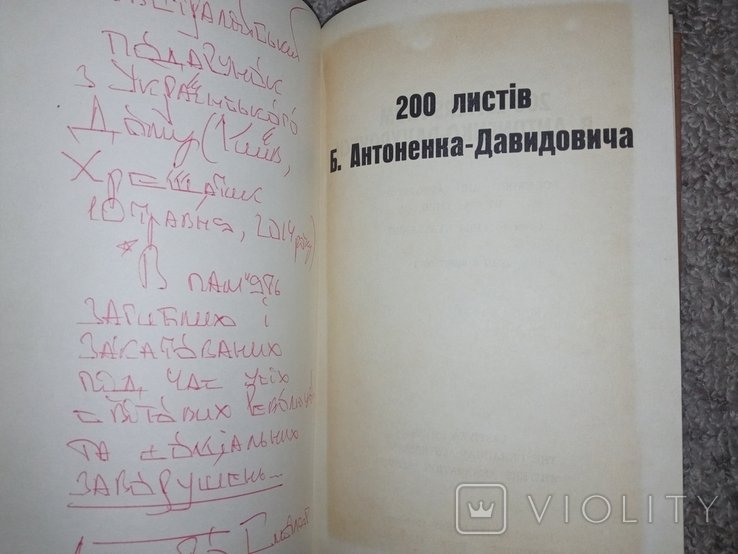 подарунок
з Українського
Дому (Київ,
Хрещатик
10 травня, 2014 року)
* В пам'ять
загиблих і
закатованих
під час усіх
світових революцій
та соціальних
заворушень...
200 листів
Б. Антоненка-Давидовича
VIOLITY